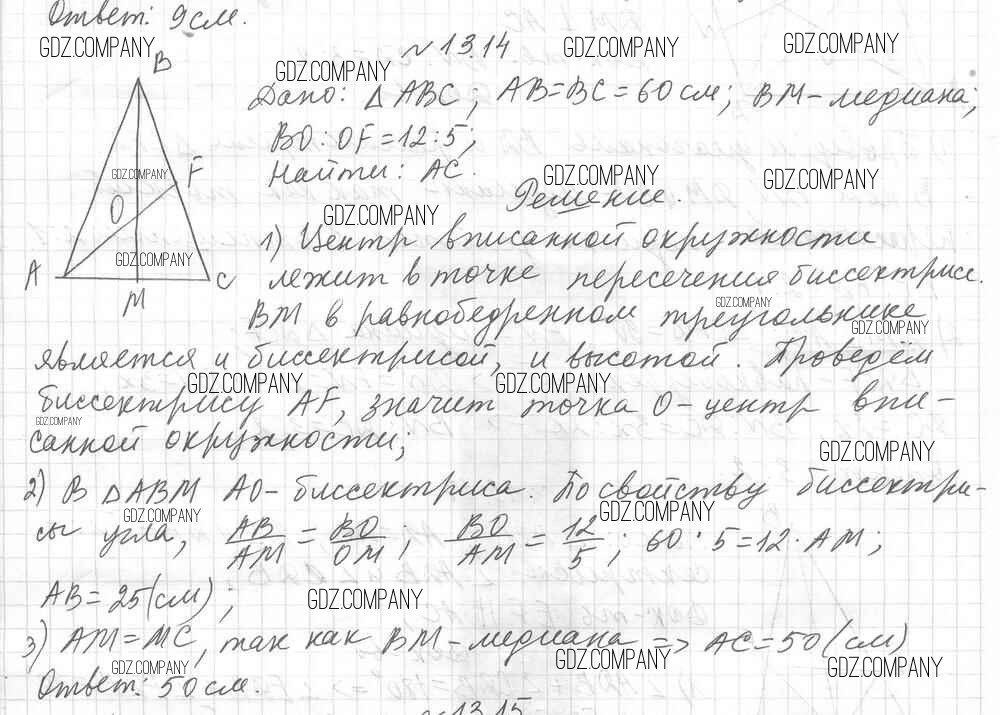 Ответ: 9 см.
GDZ.COMPANY
~ 13.14
GDZ.COMPANY
GDZ.COMPANY
B
GDZ.COMPANY
Дано: △ABC; AB=BC=60 см; BM-медиана;
BO:OF=12:5;
GDZ.COMPANY
F
Найти: AC.
GDZ.COMPANY
GDZ.COMPANY
Решение.
O
GDZ.COMPANY
1) Центр вписанной окружности
GDZ.COMPANY
A
C
M
лежит в точке пересечения биссектрисс.
GDZ.COMPANY
BM в равнобедренном треугольнике
GDZ.COMPANY
является и биссектрисой, и высотой. Проведём
GDZ.COMPANY
GDZ.COMPANY
биссектрису AF, значит точка O-центр впи-
GDZ.COMPANY
санной окружности;
GDZ.COMPANY
2) В △ABM AO-биссектриса. По свойству биссектри-
GDZ.COMPANY
GDZ.COMPANY
сы угла, AB/AM = BO/OM; BO/AM = 12/5; 60·5=12·AM;
AB=25(см);
GDZ.COMPANY
3) AM=MC, так как BM-медиана => AC=50(см)
GDZ.COMPANY
GDZ.COMPANY
GDZ.COMPANY
Ответ: 50 см.
~ 13.15